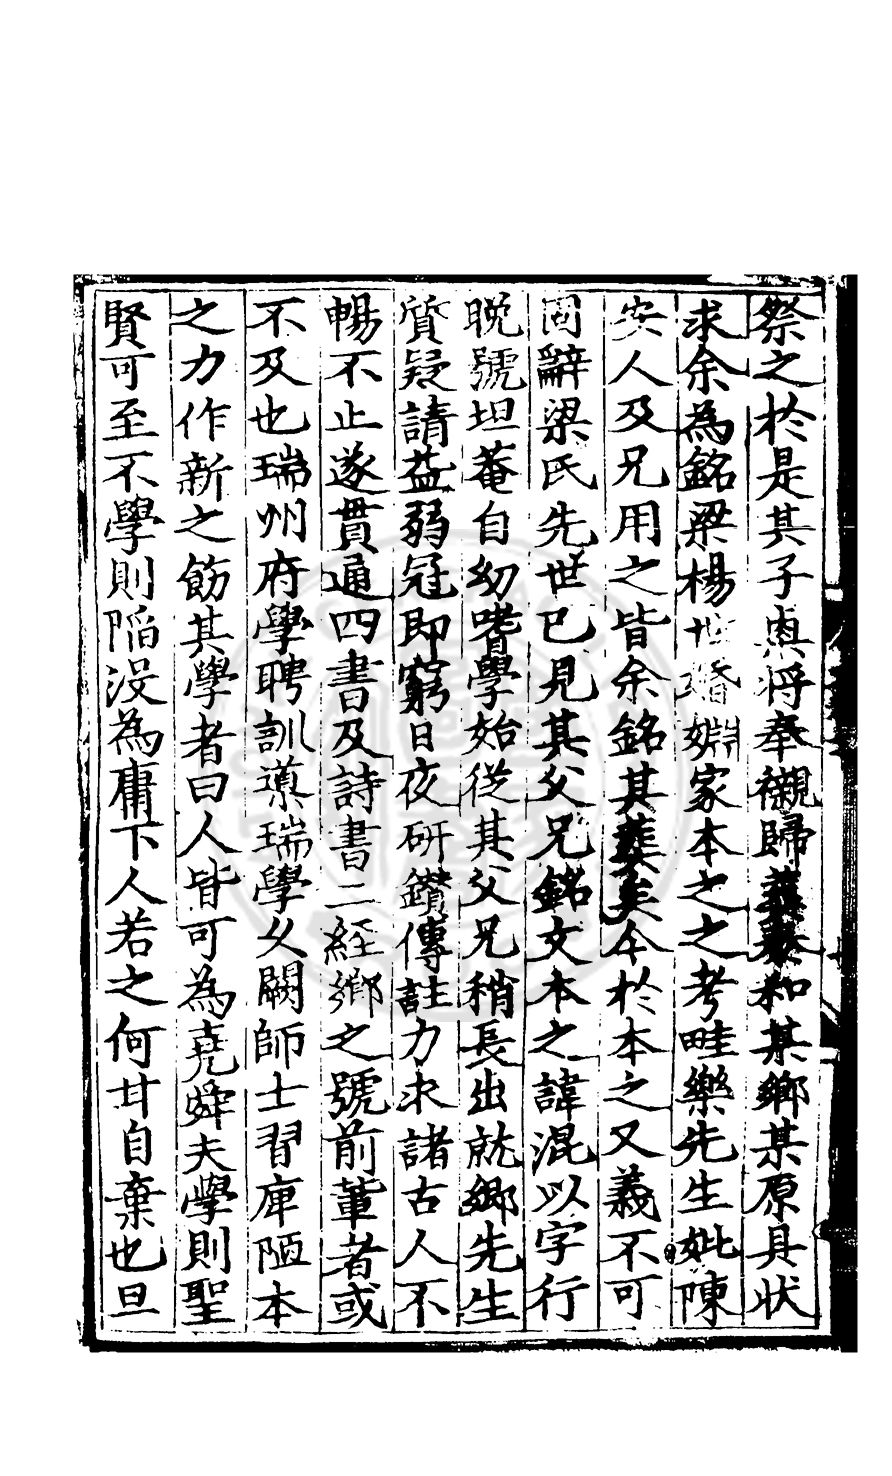 祭之於是其子㝢将奉襯歸葬泰和某鄉某原具状
求余為銘梁楊世婚姻家本之之考畦樂先生妣陳
安人及兄用之皆余銘其葬矣今於本之又義不可
固辭梁氏先世已見其父兄銘文本之諱混以字行
晩號坦菴自幼嗜學始從其父兄稍長出就鄉先生
質疑請益弱冠即窮日夜研鑽傳註力求諸古人不
暢不止遂貫通四書及詩書二經鄉之號前輩者或
不及也瑞州府學聘訓導瑞學久闕師士習庳陋本
之力作新之飭其學者曰人皆可為堯舜夫學則聖
賢可至不學則陷没為庸下人若之何甘自棄也旦